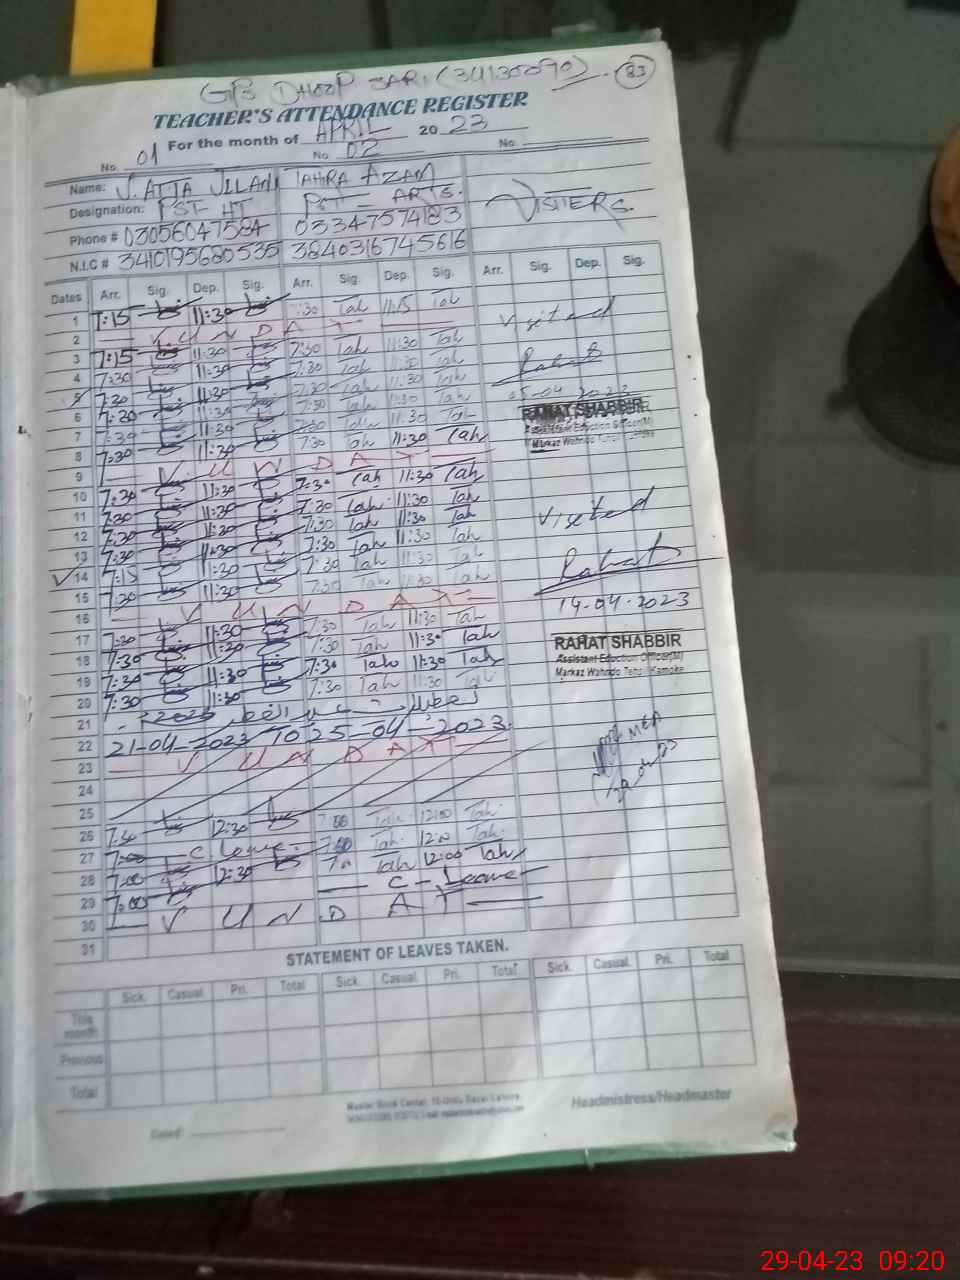 GPS DHOOP SARI (34130090) 83
TEACHER'S ATTENDANCE REGISTER
For the month of APRIL 2023
No. 01 No. 02 No.
Name: J. ATTA JILANI TAHRA AZAM
Designation: PST-HT PST - ARTS. VISITERS.
Phone # 03056047584 03347574183
N.I.C # 3410195680535 3840316745616
Dates Arr. Sig. Dep. Sig. Arr. Sig. Dep. Sig. Arr. Sig. Dep. Sig.
1 7:15 11:30 7:30 Tah 11:15 Tah
2 S U N D A Y Visited
3 7:15 11:30 7:30 Tah 11:30 Tah
4 7:30 11:30 7:30 Tah 11:30 Tah Rahat
5 7:30 11:30 7:30 Tah 11:30 Tah 05-04-2023
6 7:30 11:30 7:30 Tah 11:30 Tah RAHAT SHABBIR
7 7:30 11:30 7:30 Tah 11:30 Tah Assistant Eduction Officer(M)
8 7:30 11:30 7:30 Tah 11:30 Tah Markaz Wahndo
9 S U N D A Y
10 7:30 11:30 7:30 Tah 11:30 Tah
11 7:30 11:30 7:30 Tah 11:30 Tah
12 7:30 11:30 7:30 Tah 11:30 Tah Visited
13 7:30 11:30 7:30 Tah 11:30 Tah
14 7:15 11:30 7:30 Tah 11:30 Tah Rahat
15 7:30 11:30 7:30 Tah 11:30 Tah
16 S U N D A Y 14-04-2023
17 7:30 11:30 7:30 Tah 11:30 Tah
18 7:30 11:30 7:30 Tah 11:30 Tah RAHAT SHABBIR
19 7:30 11:30 7:30 Tah 11:30 Tah Assistant Eduction Officer(M)
20 7:30 11:30 7:30 Tah 11:30 Tah Markaz Wahndo Teh. Kamoke
21 تعطیلات عید الفطر 2023
22 21-04-2023 TO 25-04-2023
23 S U N D A Y MEA
24
25
26 7:30 12:30 7:00 Tah 12:00 Tah
27 7:00 C. Leave. 7:00 Tah 12:00 Tah
28 7:00 12:30 7:00 Tah 12:00 Tah
29 7:00 C - Leave
30 S U N D A Y
31
STATEMENT OF LEAVES TAKEN.
Sick. Casual Pri. Total Sick. Casual Pri. Total Sick. Casual. Pri. Total
This month
Previous
Total
Headmistress/Headmaster
Dated
29-04-23 09:20